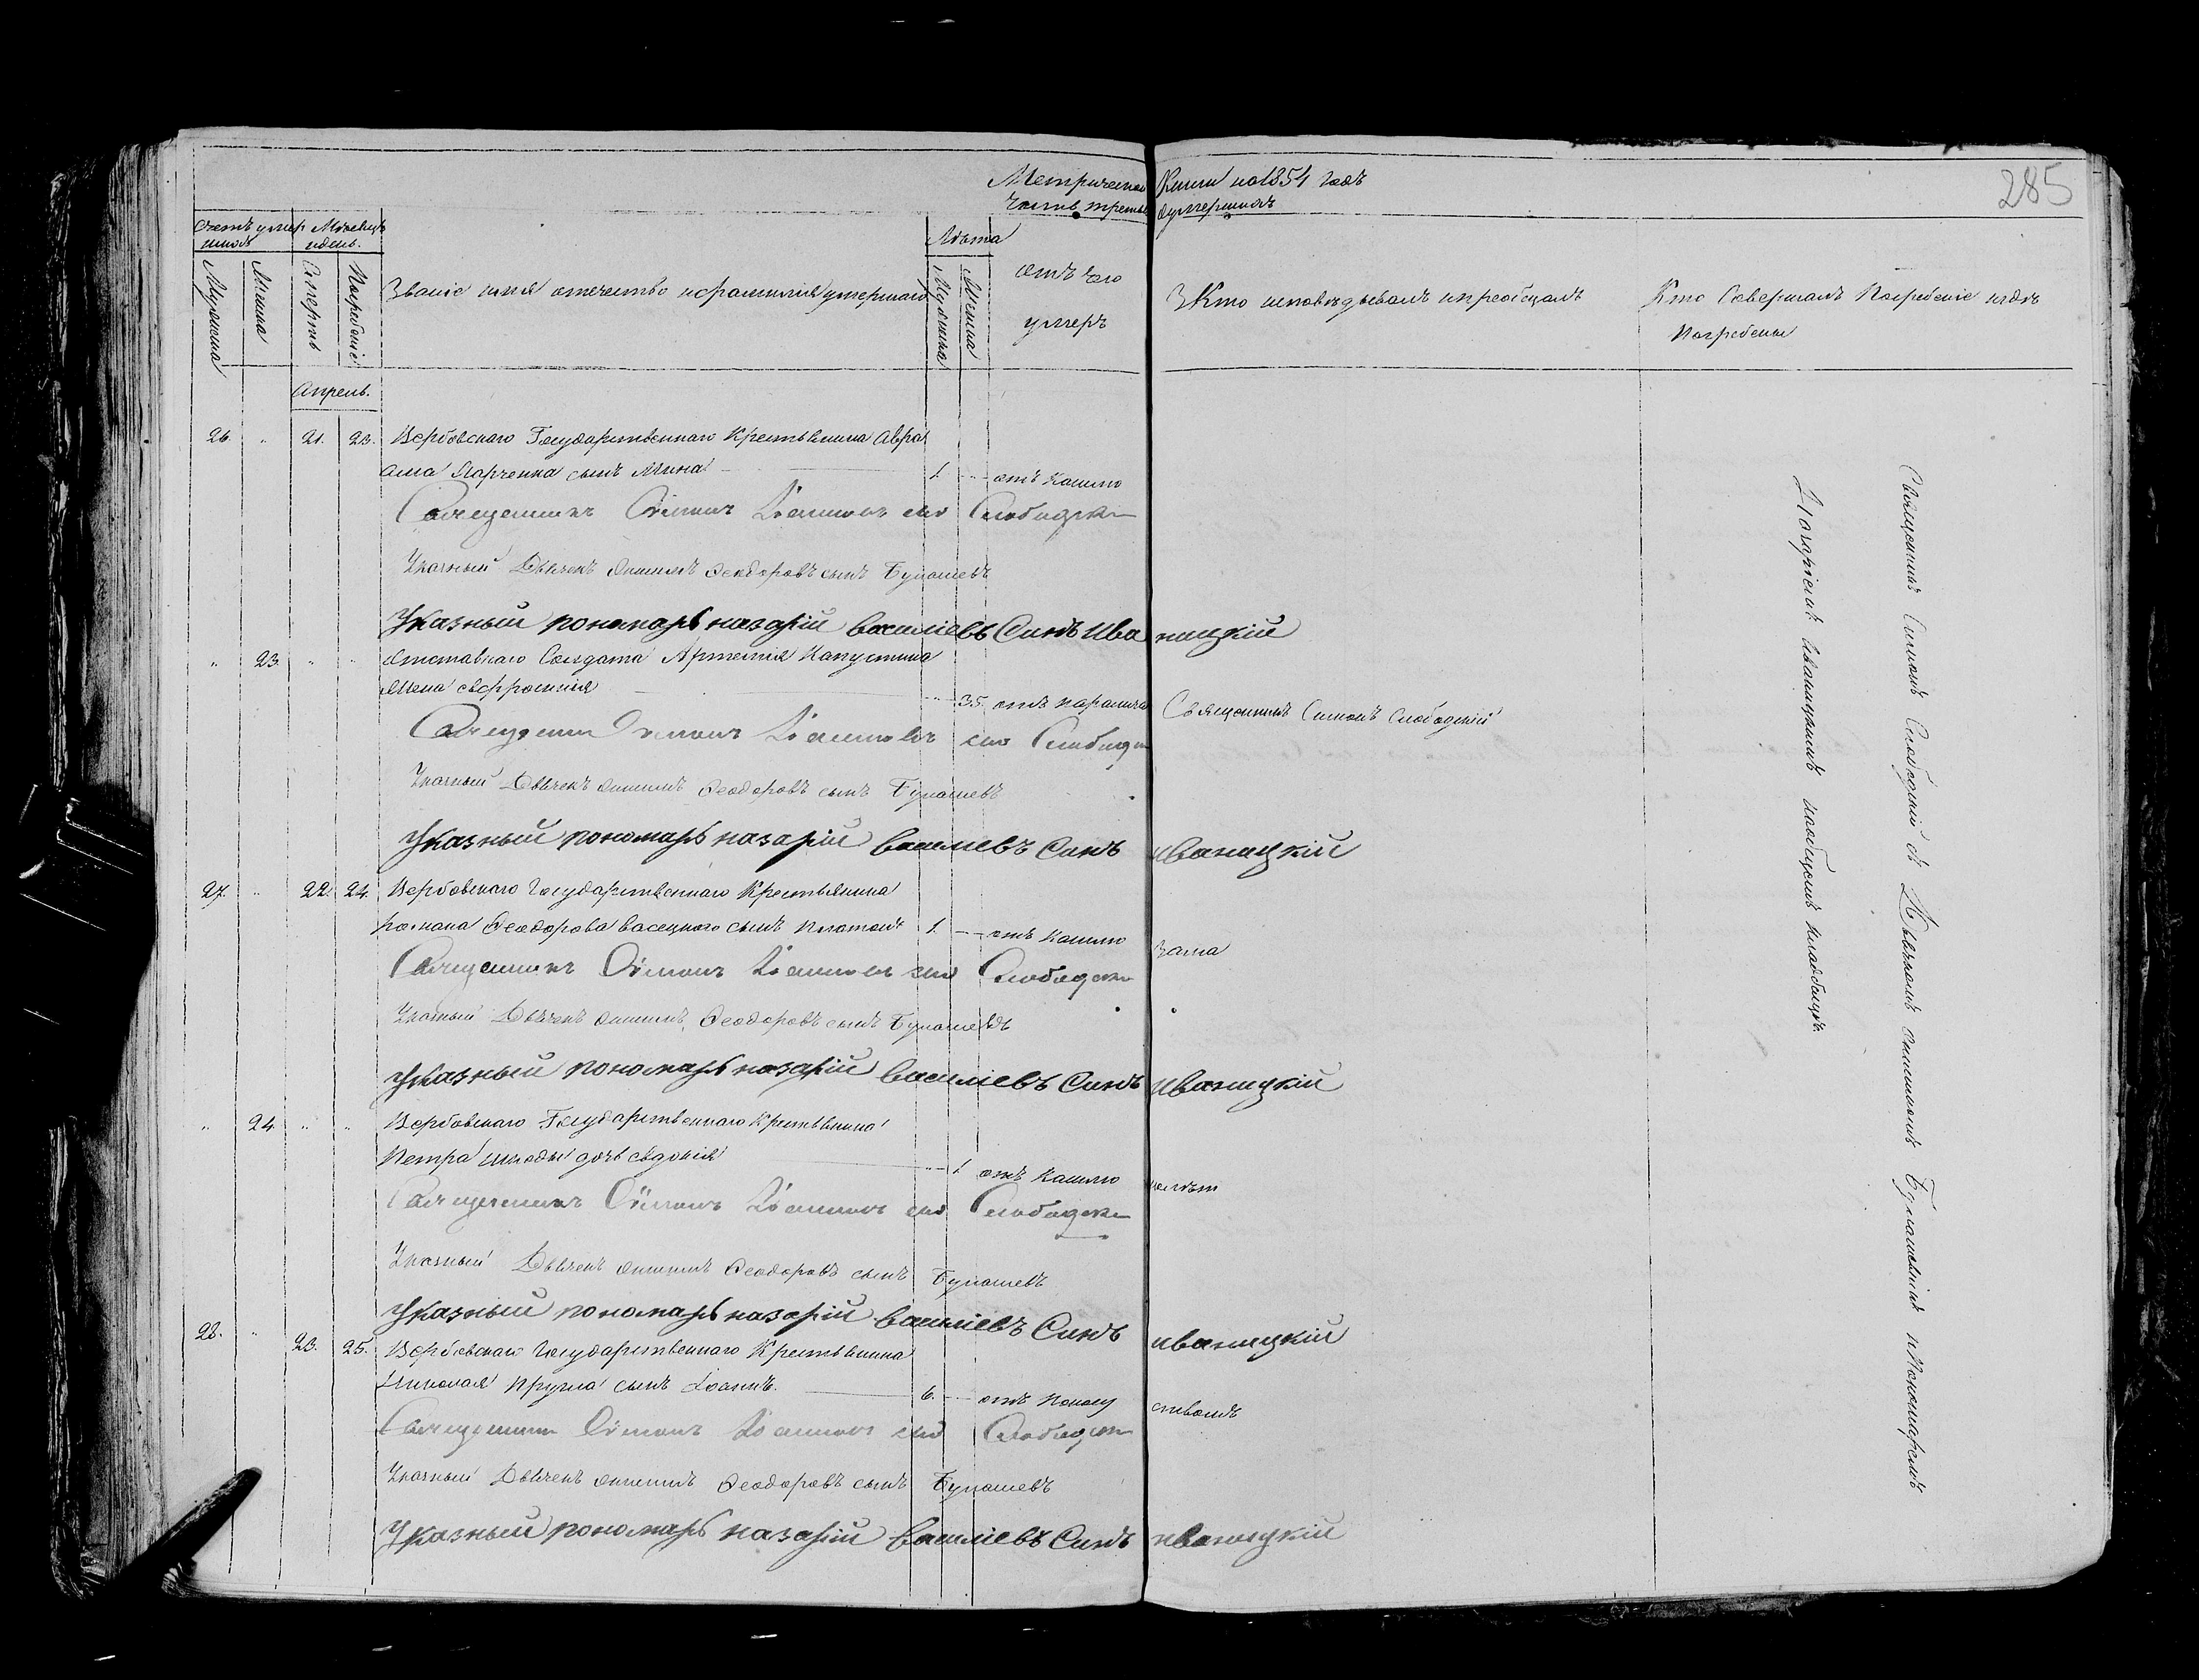 285
Метрической Книги на 1854 годъ
Часть третья о умершихъ
Счетъ умершихъ
Мѣсяцъ и день.
Мужеска
Женска
Смерть
Погребеніе
Званіе имя отечество и фамилія умершаго
Лѣта
Мужеска
Женска
Отъ чего умеръ
Кто исповѣдывалъ и преобщалъ
Кто Совершалъ Погребеніе и гдѣ
Погребены
Апрель.
26 " 21. 23. Вербовскаго Государственнаго Крестьянина Авра
ама сынъ Мина 1. отъ Кашлю
Священникъ Симонъ Іоанновъ сынъ Слободскі
Указный Дьячекъ Онисимъ Ѳеодоровъ сынъ Булашевъ
Указный пономарь назарій василіевъ Синъ иваницкій
" 23. " " Отставнаго Солдата Артемія Капустина
Жена Евфросинія 35. отъ паралича Священникъ Симонъ Слободскій
Священникъ Симонъ Іоанновъ сынъ Слободск
Указный Дьячекъ Онисимъ Ѳеодоровъ сынъ Булашевъ
Указный пономарь назарій василіевъ Синъ иваницкій
27. " 22. 24. Вербовскаго Государственнаго Крестьянина
Романа Ѳеодорова васецкого сынъ Платонъ 1. отъ Кашлю
Священникъ Симонъ Іоанновъ сынъ Слободскі
Указный Дьячекъ Онисимъ Ѳеодоровъ сынъ Булашевъ
Указный пономарь назарій василіевъ Синъ иваницкій
" 24. " " Вербовскаго Государственнаго Крестьянина
Петра Шкоды дочь Евдокія 1 отъ Кашлю
Священникъ Симонъ Іоанновъ сынъ Слободскі
Указный Дьячекъ Онисимъ Ѳеодоровъ сынъ Булашевъ
Указный пономарь назарій василіевъ Синъ иваницкій
28. " 23. 25. Вербовскаго Государственнаго Крестьянина
Николая Кругла сынъ Іоаннъ. 6. отъ
Священникъ Симонъ Іоанновъ сынъ Слободскі
Указный Дьячекъ Онисимъ Ѳеодоровъ сынъ Булашевъ
Указный пономарь назарій василіевъ Синъ иваницкій
Священникъ Симонъ Слободскій съ Дьячкомъ Онисимомъ Булашевымъ и Пономаремъ
Назаріемъ Иваницкимъ наобщомъ кладбищѣ.